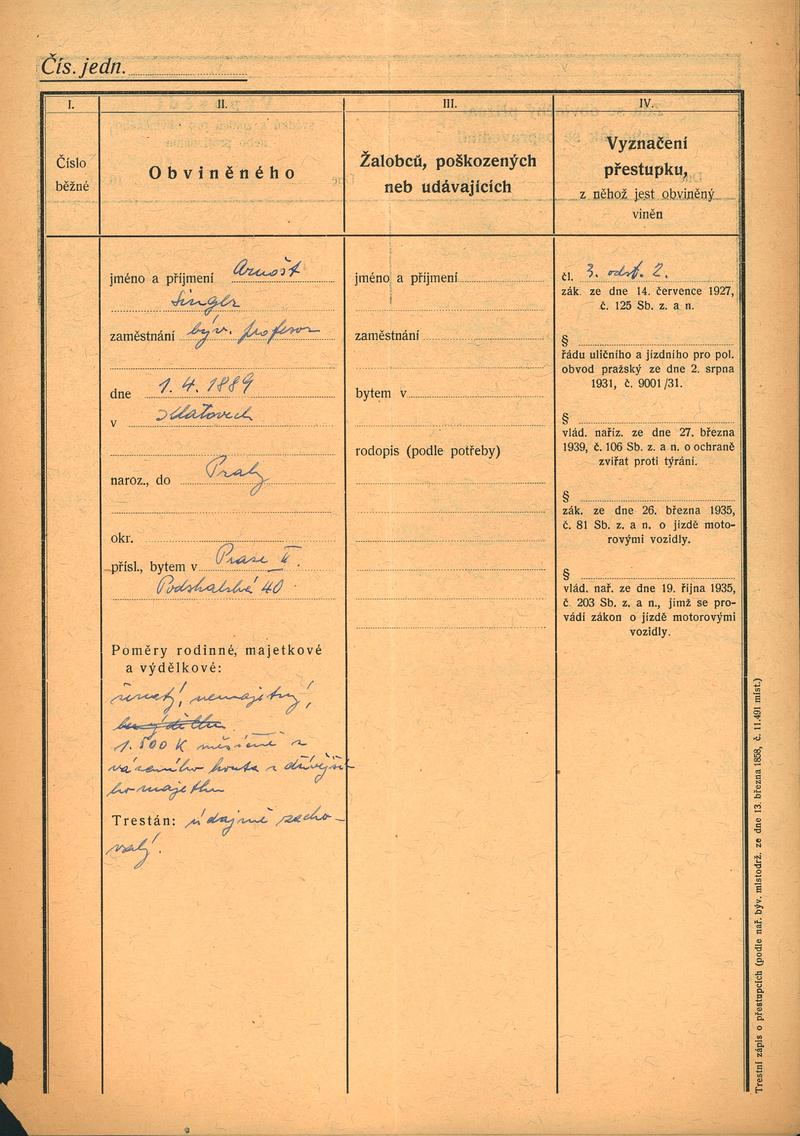 Čís. jedn.
I.
II.
III.
IV.
Číslo
běžné
Obviněného
Žalobců, poškozených
neb udávajících
Vyznačení
přestupku,
z něhož jest obviněný
viněn
jméno a příjmení Arnošt
Singer
zaměstnání býv. profesor
dne 1. 4. 1889
v Klatovech
naroz., do Prahy
okr.
přísl., bytem v Praze II.
Podskalská 40
Poměry rodinné, majetkové
a výdělkové:
ženatý, nemajetný,
bez výdělku
1.500 K měsíčně z
vázaného konta z dřívější-
ho majetku
Trestán: údajně zacho-
valý.
jméno a příjmení
zaměstnání
bytem v
rodopis (podle potřeby)
čl. 3. odst. 2.
zák. ze dne 14. července 1927,
č. 125 Sb. z. a n.
§
řádu uličního a jízdního pro pol.
obvod pražský ze dne 2. srpna
1931, č. 9001/31.
§
vlád. naříz. ze dne 27. března
1939, č. 106 Sb. z. a n. o ochraně
zvířat proti týrání.
§
zák. ze dne 26. března 1935,
č. 81 Sb. z. a n. o jízdě moto-
rovými vozidly.
§
vlád. nař. ze dne 19. října 1935,
č. 203 Sb. z. a n., jimž se pro-
vádí zákon o jízdě motorovými
vozidly.
Trestní zápis o přestupcích (podle nař. býv. místodrž. ze dne 13. března 1858, č. 11.491 míst.)